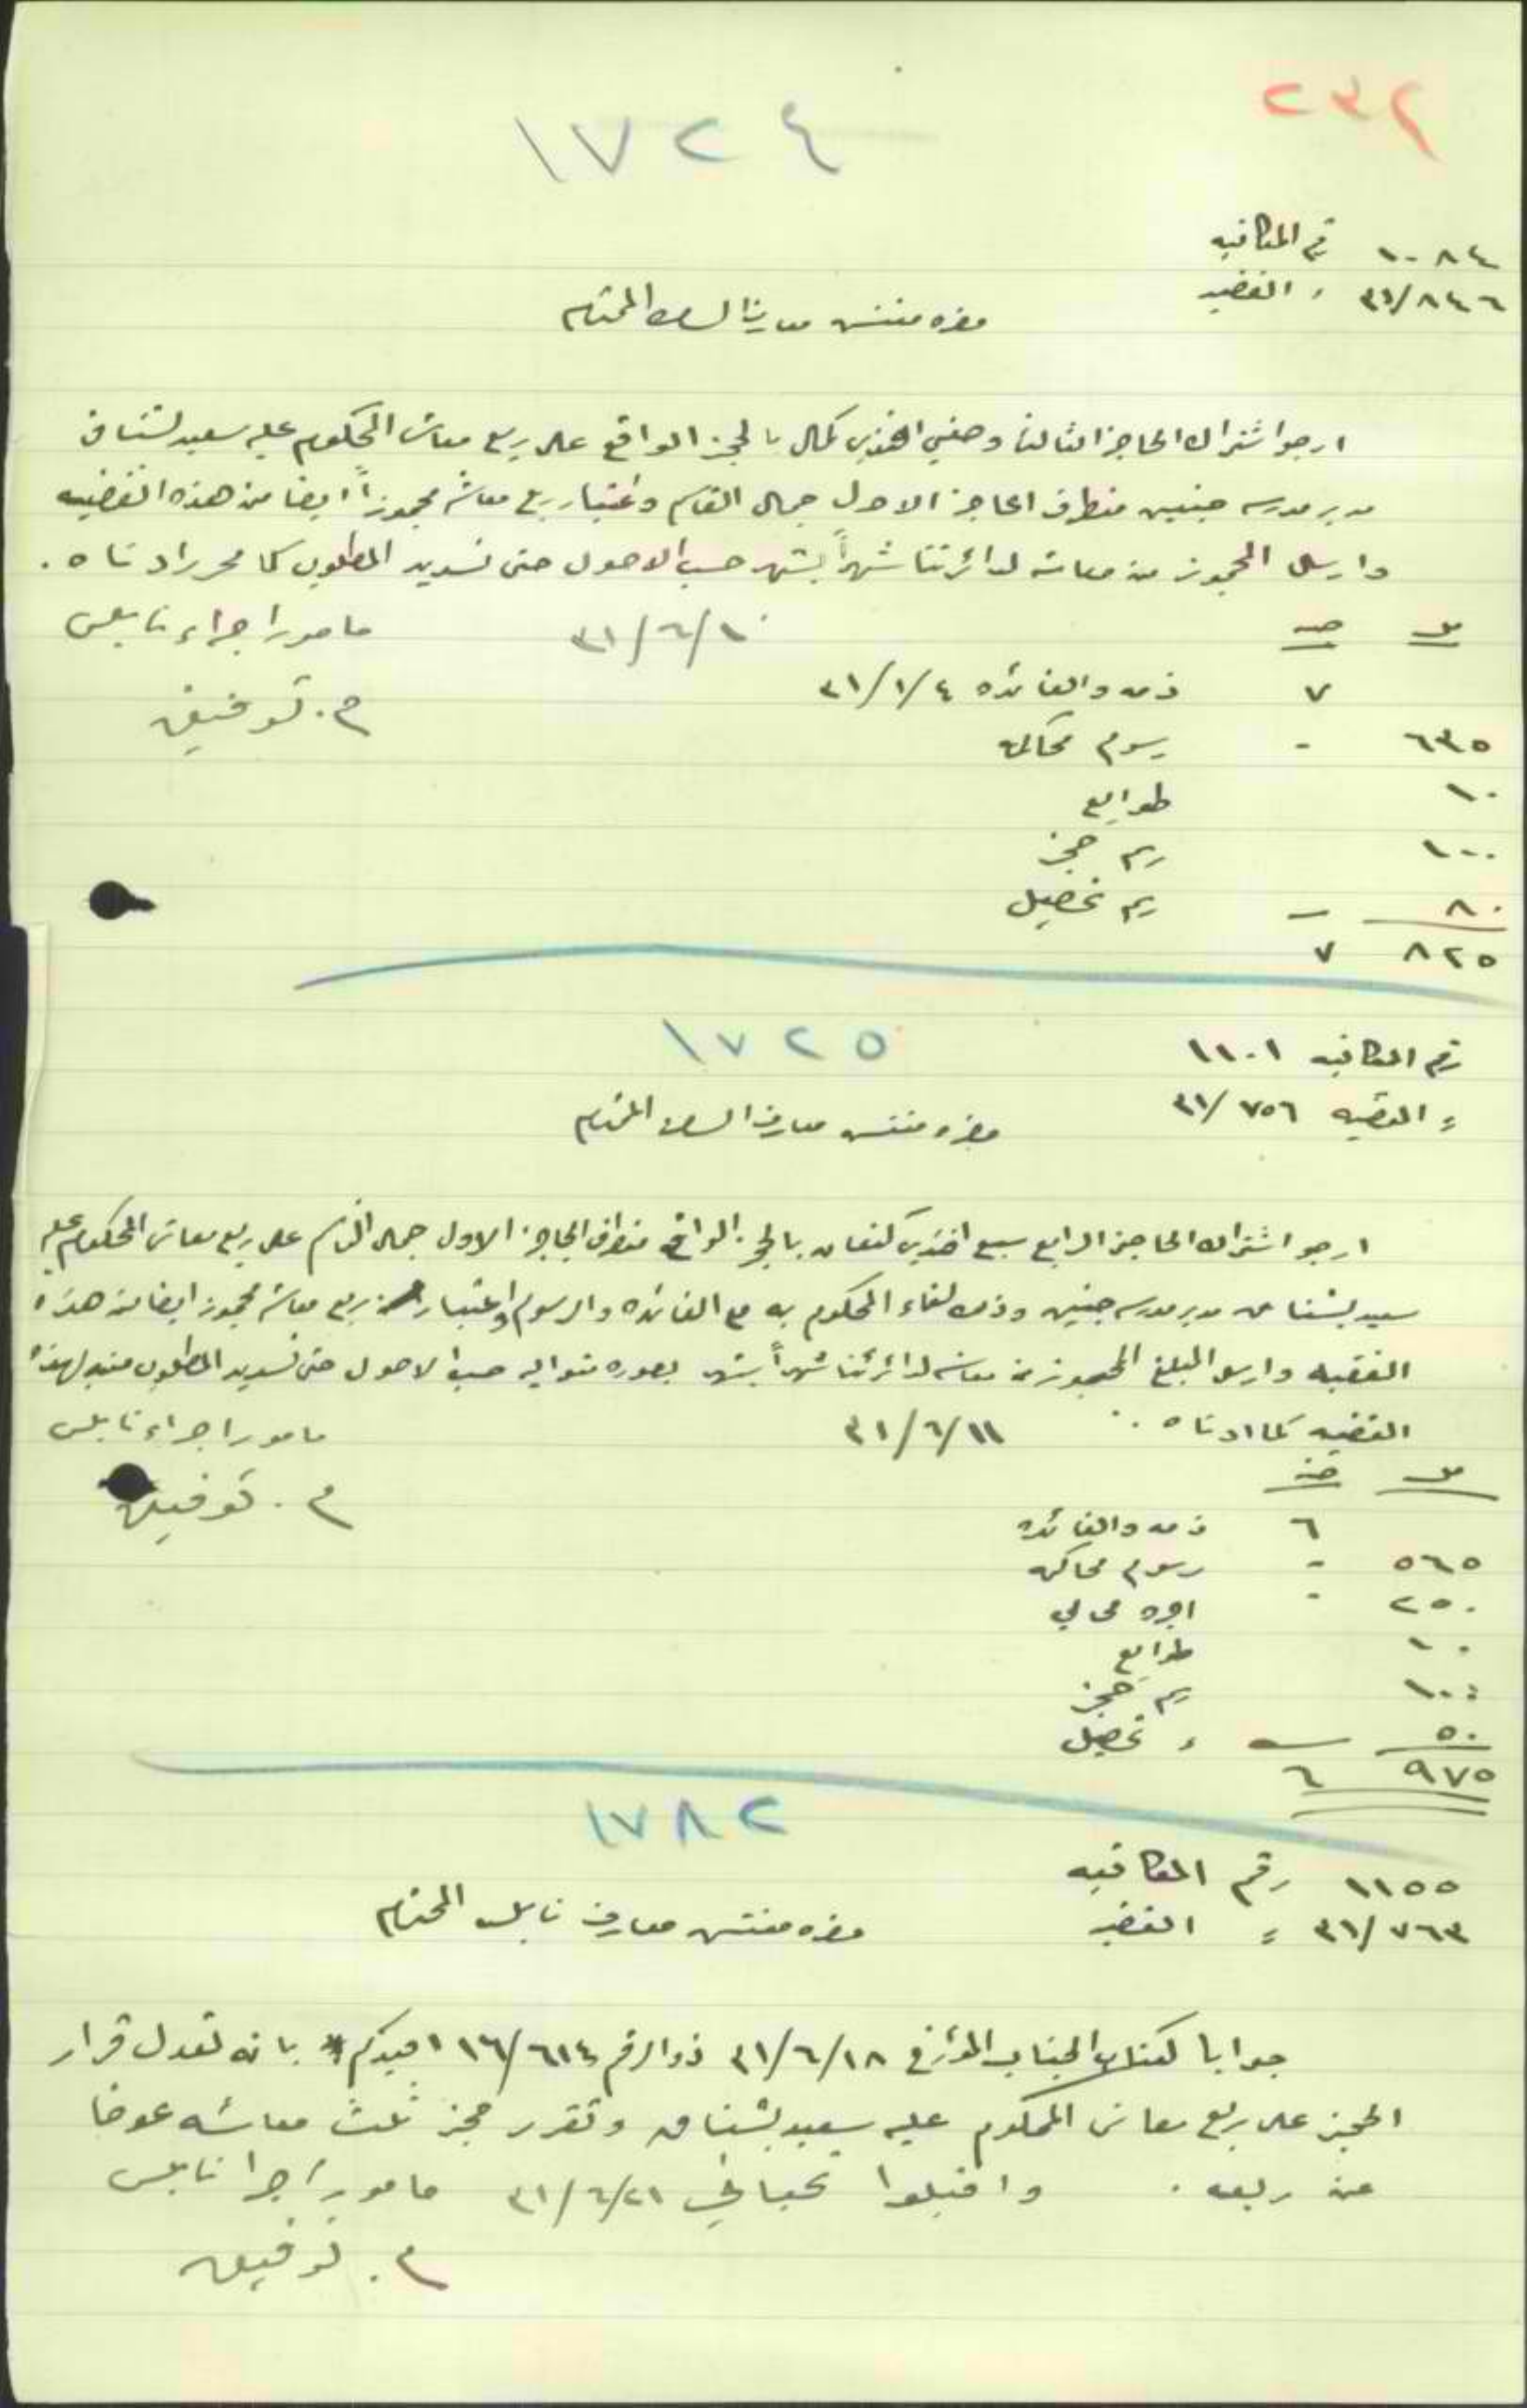 ٢٣٢
١٧٢٤
١٠٨٤ رقم المكاتبه
٣١/٨٤٦ = القضيه
حضرة مفتش معارف السامره المحترم
ارجو اشتراك الحاجز الثالث وصفي افندي كمال بالحجز الواقع على ربع معاش المحكوم عليه سعيد بشناق
مدير مدرسه جنين من طرف الحاجز الاول جمال القاسم واعتبار ربع معاشه محجوزاً ايضا من هذه القضيه
وارسال المحجوز من معاشه لدائرتنا شهراً بشهر حسب الاصول حتى تسديد المطلوب كما محرر ادناه .
٣١/٦/١٠ مامور اجراء نابلس
م . توفيق
مل جنه
٧ ذمه والفائده ٣١/١/٤
٦٣٥ - رسوم محاكمه
١٠ طوابع
١٠٠ رسم حجز
٨٠ - رسم تحصيل
٨٢٥ ٧
١٧٢٥
رقم المكاتبه ١١٠١
= القضيه ٣١/٧٥٦
حضرة مفتش معارف السامره المحترم
ارجو اشتراك الحاجز الرابع سبع افندي كنعان بالحجز الواقع من طرف الحاجز الاول جمال القاسم على ربع معاش المحكوم عليه
سعيد بشناق مدير مدرسه جنين وذلك لقاء المحكوم به مع الفائده والرسوم واعتبار ربع معاشه محجوز ايضا من هذه
القضيه وارسال المبلغ المحجوز من معاشه لدائرتنا شهراً بشهر بصوره متواليه حسب الاصول حتى تسديد المطلوب منه لهذه
القضيه كما ادناه . ٣١/٦/١١ مامور اجراء نابلس
م . توفيق
مل جنه
٦ ذمه والفائده
٥٦٥ - رسوم محاكمه
٢٥٠ - اجرة محامي
١٠ طوابع
١٠٠ رسم حجز
٥٠ - = تحصيل
٩٧٥ ٦
١٧٨٢
١١٥٥ رقم المكاتبه
٣١/٧٦٣ = القضيه
حضرة مفتش معارف نابلس المحترم
جوابا لكتاب الجناب المؤرخ ٣١/٦/١٨ ذو الرقم ١٦/٦١٤ افيدكم بانه تعدل قرار
الحجز على ربع معاش المحكوم عليه سعيد بشناق وتقرر حجز ثلث معاشه عوضا
عن ربعه . واقبلوا تحياتي ٣١/٦/٢١ مامور اجرا نابلس
م . توفيق